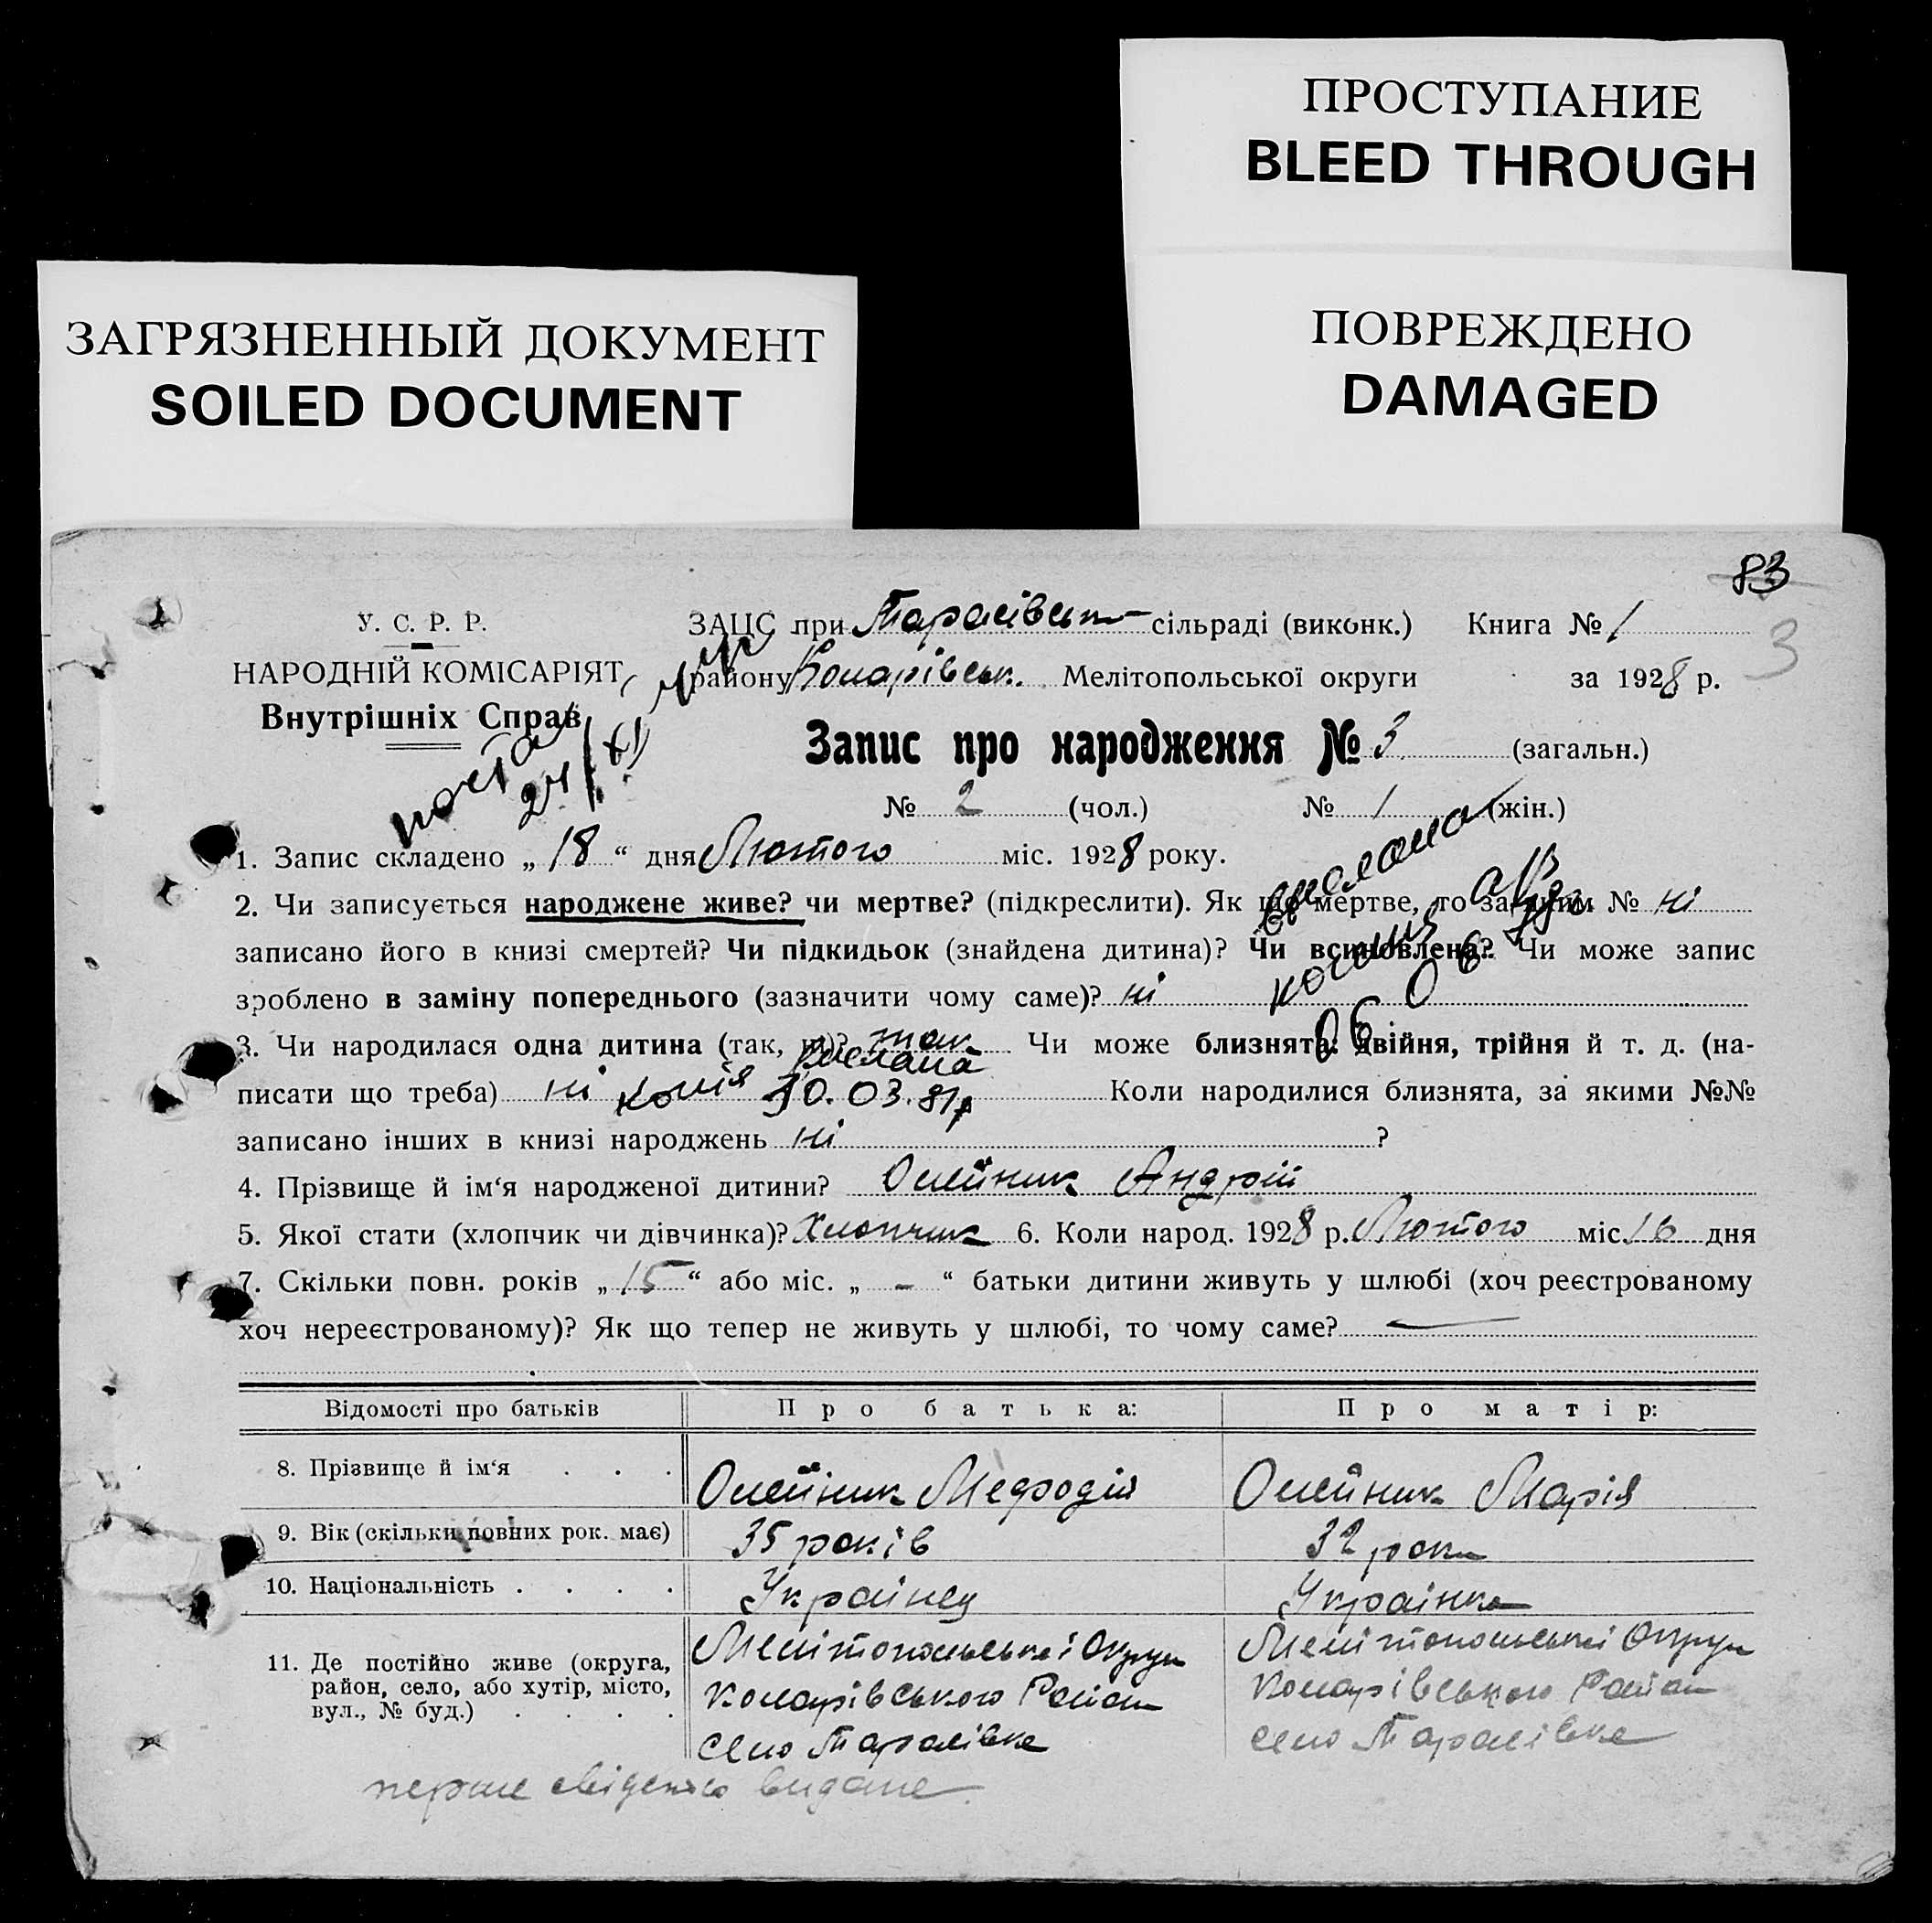 ПРОСТУПАНИЕ
BLEED THROUGH
ЗАГРЯЗНЕННЫЙ ДОКУМЕНТ
SOILED DOCUMENT
ПОВРЕЖДЕНО
DAMAGED
83
3
У. С. Р. Р.
НАРОДНІЙ КОМІСАРІЯТ
Внутрішніх Справ
ЗАЦС при Тарасівськ сільраді (виконк.) Книга № 1
району Комарівськ. Мелітопольської округи за 1928 р.
Запис про народження № 3 (загальн.)
№ 2 (чол.) № 1 (жін.)
1. Запис складено „ 18 “ дня Лютого міс. 1928 року.
2. Чи записується народжене живе? чи мертве? (підкреслити). Як що мертве, то за яким № ні
записано його в книзі смертей? Чи підкидьок (знайдена дитина)? Чи всиновлена? Чи може запис
зроблено в заміну попереднього (зазначити чому саме)? ні
3. Чи народилася одна дитина (так, ні)? так Чи може близнята: двійня, трійня й т. д. (на-
писати що треба) ні Коли народилися близнята, за якими №№
копія выслана 30.03.81
записано інших в книзі народжень ні ?
4. Прізвище й ім‘я народженої дитини? Олейник Андрій
5. Якої стати (хлопчик чи дівчинка)? Хлопчик 6. Коли народ. 1928 р. Лютого міс. 16 дня
7. Скільки повн. років „ 15 “ або міс. „ - “ батьки дитини живуть у шлюбі (хоч реєстрованому
хоч нереєстрованому)? Як що тепер не живуть у шлюбі, то чому саме? —
Відомості про батьків Про батька: Про матір:
8. Прізвище й ім‘я . . . Олейник Мефодій Олейник Марія
9. Вік (скільки повних рок. має) 35 років 32 роки
10. Національність . . . . Українец Українка
11. Де постійно живе (округа, район, село, або хутір, місто, вул., № буд.) . . . .
Мелітопольської Округи
Комарівського Району
село Тарасівка
Мелітопольської Округи
Комарівського Району
село Тарасівка
перше видане